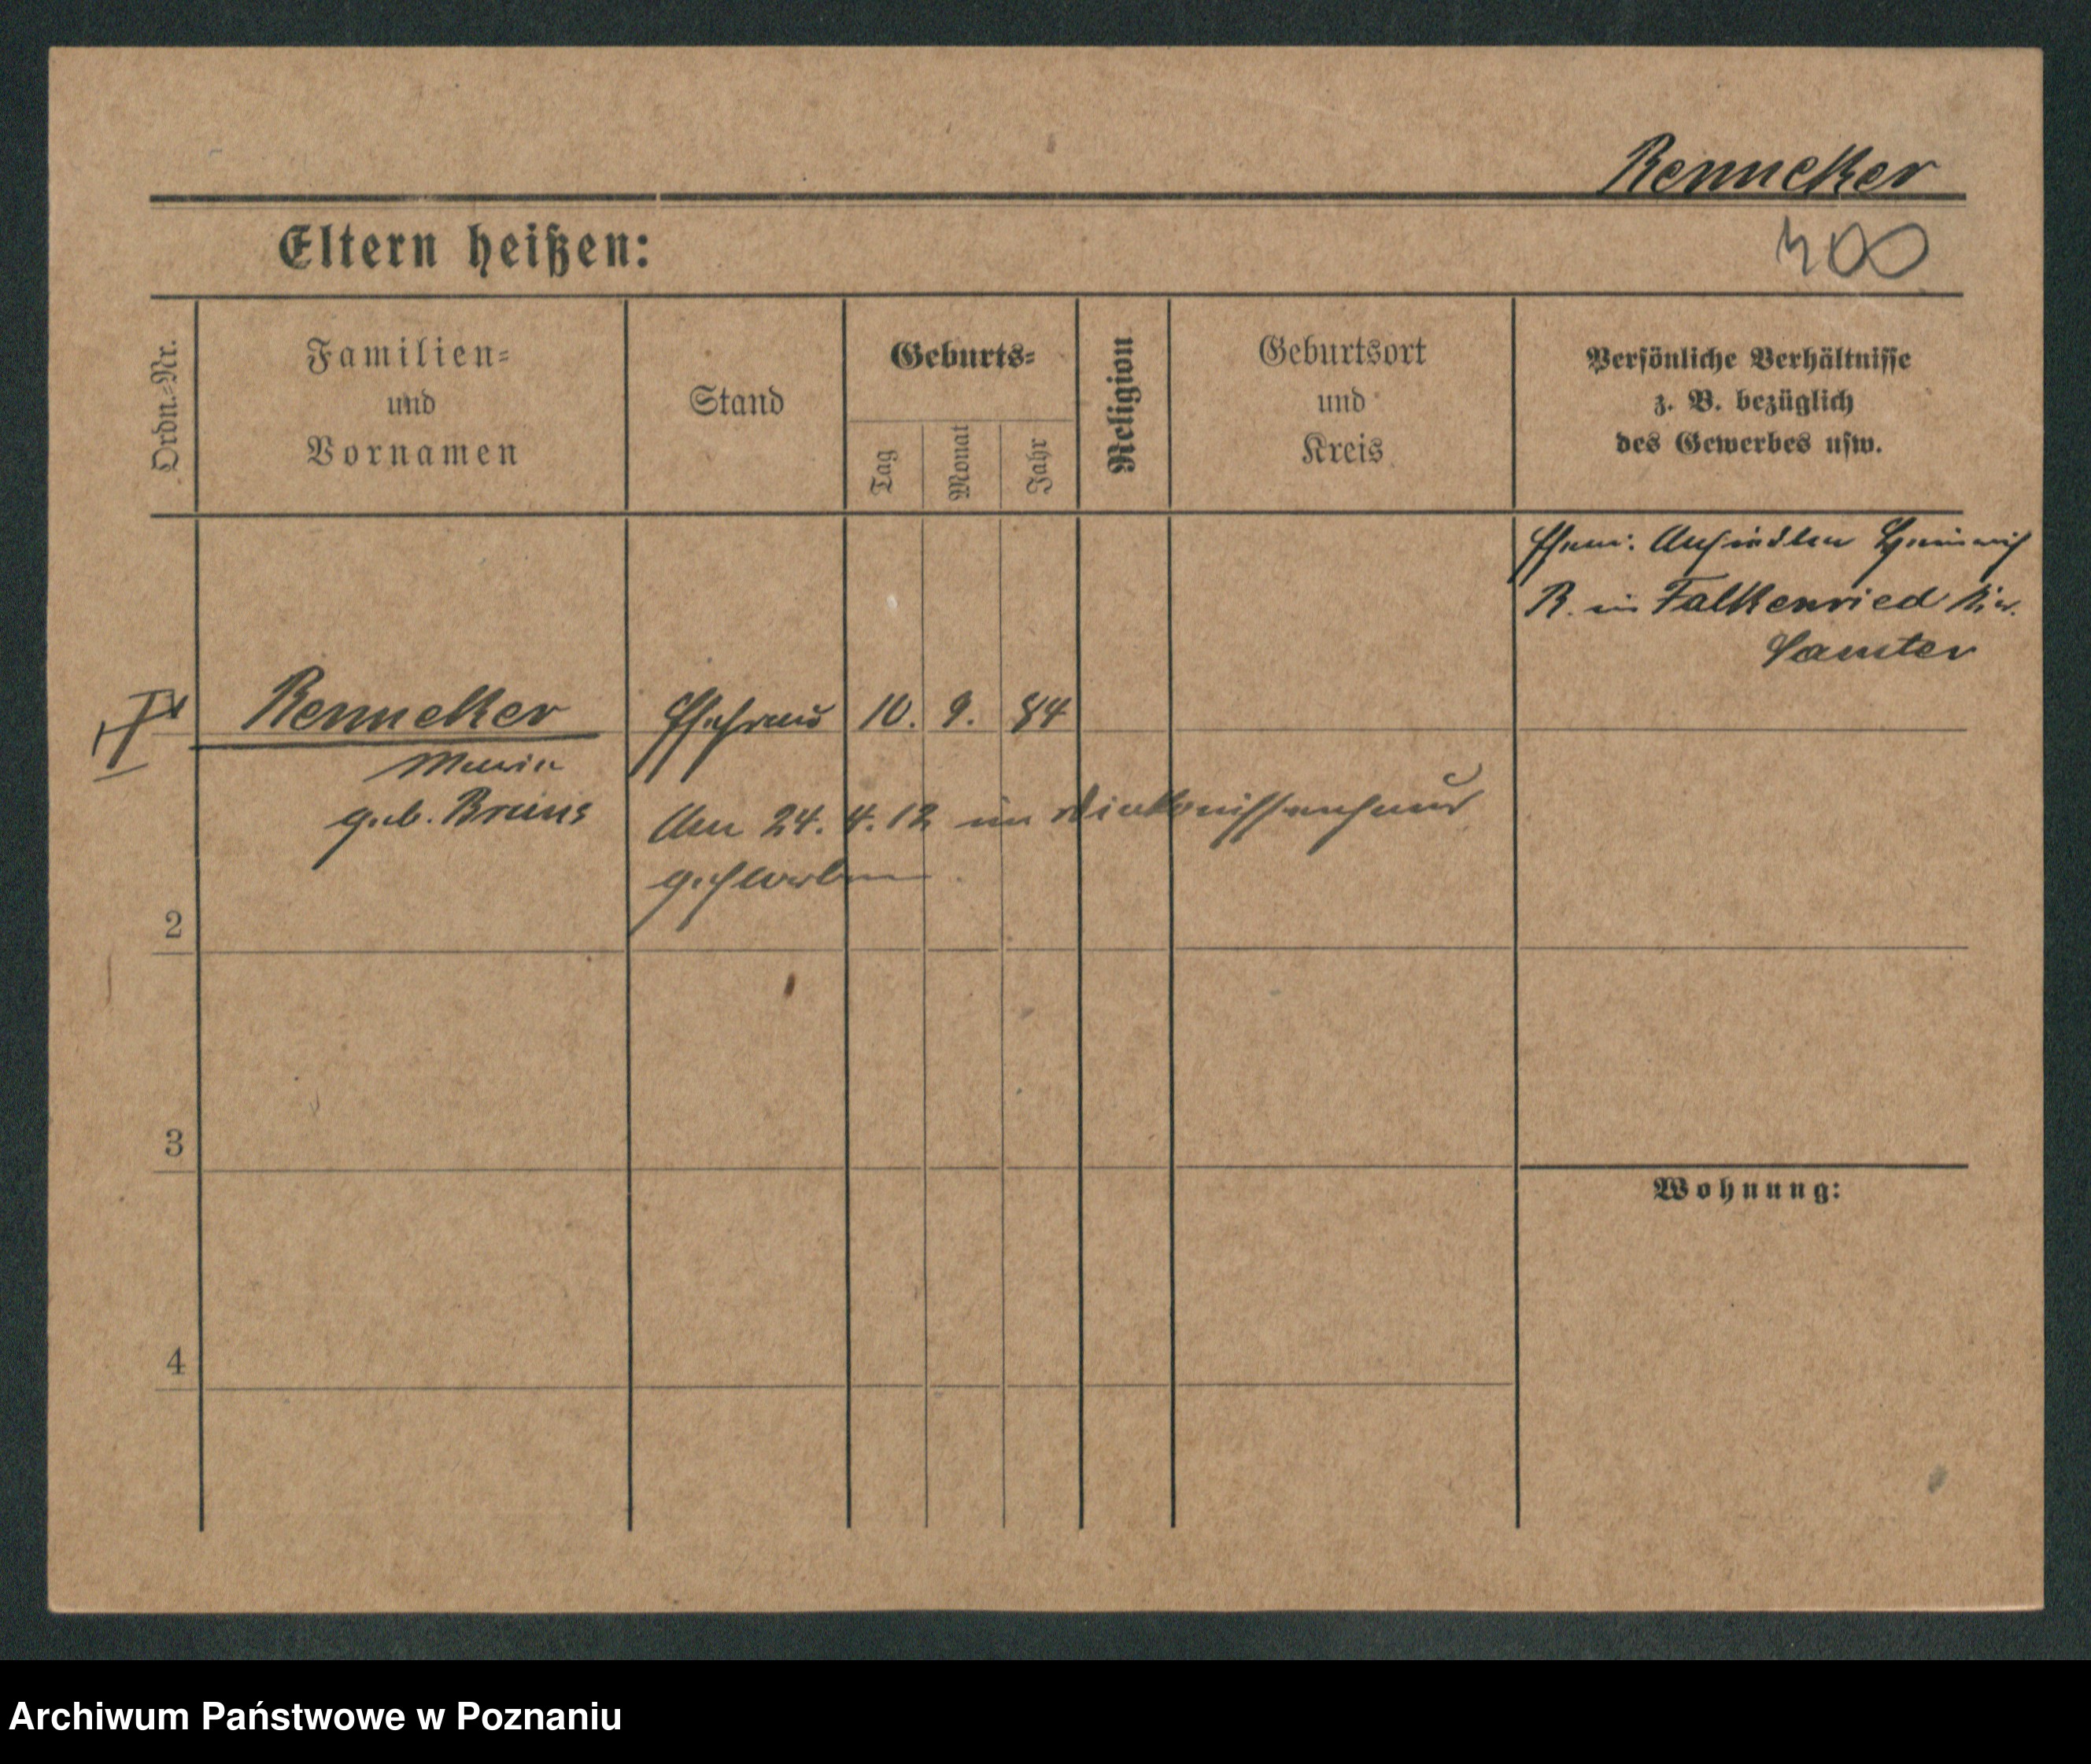 Renneker
300
Eltern heißen:
Ordn.-Nr.
Familien-
und
Vornamen
Stand
Geburts-
Tag
Monat
Jahr
Religion
Geburtsort
und
Kreis
Persönliche Verhältnisse
z. B. bezüglich
des Gewerbes usw.
Ehem. Ansiedler Heinrich
R. in Falkenried Kr.
Samter
Renneker
Ehefrau
10.
9.
84
Maria
geb. Bruns
Am 24. 4. 12 im Diakonissenhaus
gestorben
2
3
Wohnung:
4
Archiwum Państwowe w Poznaniu